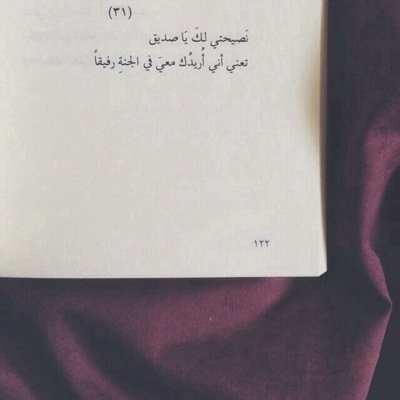 (٣١)
نَصيحتي لكَ يَا صديق
تعني أني أُريدُك معيَ في الجنةِ رفيقاً
١٢٢